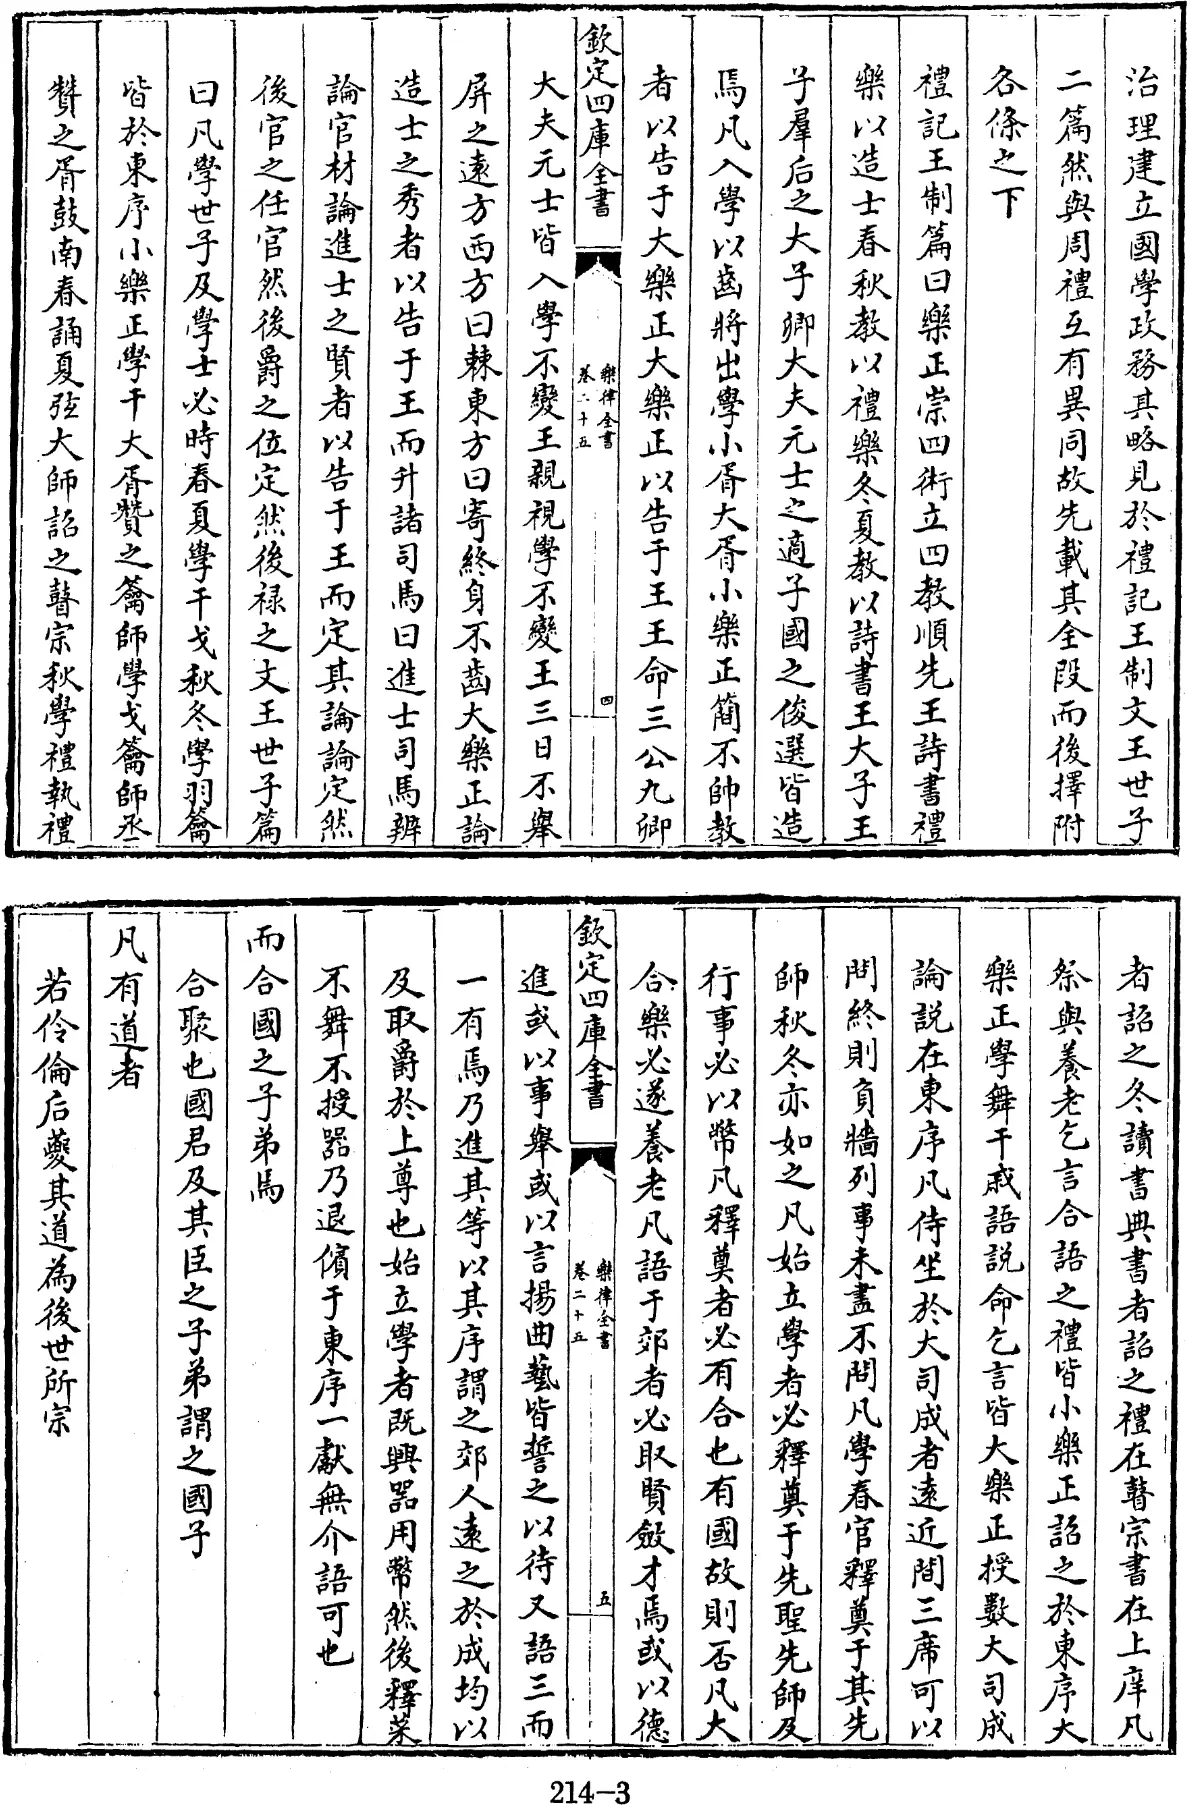 治理建立國學政務其略見於禮記王制文王世子
二篇然與周禮互有異同故先載其全段而後擇附
各條之下
禮記王制篇曰樂正崇四術立四教順先王詩書禮
樂以造士春秋教以禮樂冬夏教以詩書王大子王
子羣后之大子卿大夫元士之適子國之俊選皆造
焉凡入學以齒將出學小胥大胥小樂正簡不帥教
者以告于大樂正大樂正以告于王王命三公九卿
欽定四庫全書
樂律全書
卷二十五
四
大夫元士皆入學不變王親視學不變王三日不舉
屏之遠方西方曰棘東方曰寄終身不齒大樂正論
造士之秀者以告于王而升諸司馬曰進士司馬辨
論官材論進士之賢者以告于王而定其論論定然
後官之任官然後爵之位定然後禄之文王世子篇
曰凡學世子及學士必時春夏學干戈秋冬學羽籥
皆於東序小樂正學干大胥贊之籥師學戈籥師丞
贊之胥鼓南春誦夏弦大師詔之瞽宗秋學禮執禮
者詔之冬讀書典書者詔之禮在瞽宗書在上庠凡
祭與養老乞言合語之禮皆小樂正詔之於東序大
樂正學舞干戚語説命乞言皆大樂正授數大司成
論説在東序凡侍坐於大司成者遠近間三席可以
問終則負牆列事未盡不問凡學春官釋奠于其先
師秋冬亦如之凡始立學者必釋奠于先聖先師及
行事必以幣凡釋奠者必有合也有國故則否凡大
合樂必遂養老凡語于郊者必取賢斂才焉或以德
欽定四庫全書
樂律全書
卷二十五
五
進或以事舉或以言揚曲藝皆誓之以待又語三而
一有焉乃進其等以其序謂之郊人遠之於成均以
及取爵於上尊也始立學者既興器用幣然後釋菜
不舞不授器乃退儐于東序一獻無介語可也
而合國之子弟焉
合聚也國君及其臣之子弟謂之國子
凡有道者
若伶倫后夔其道為後世所宗
214-3